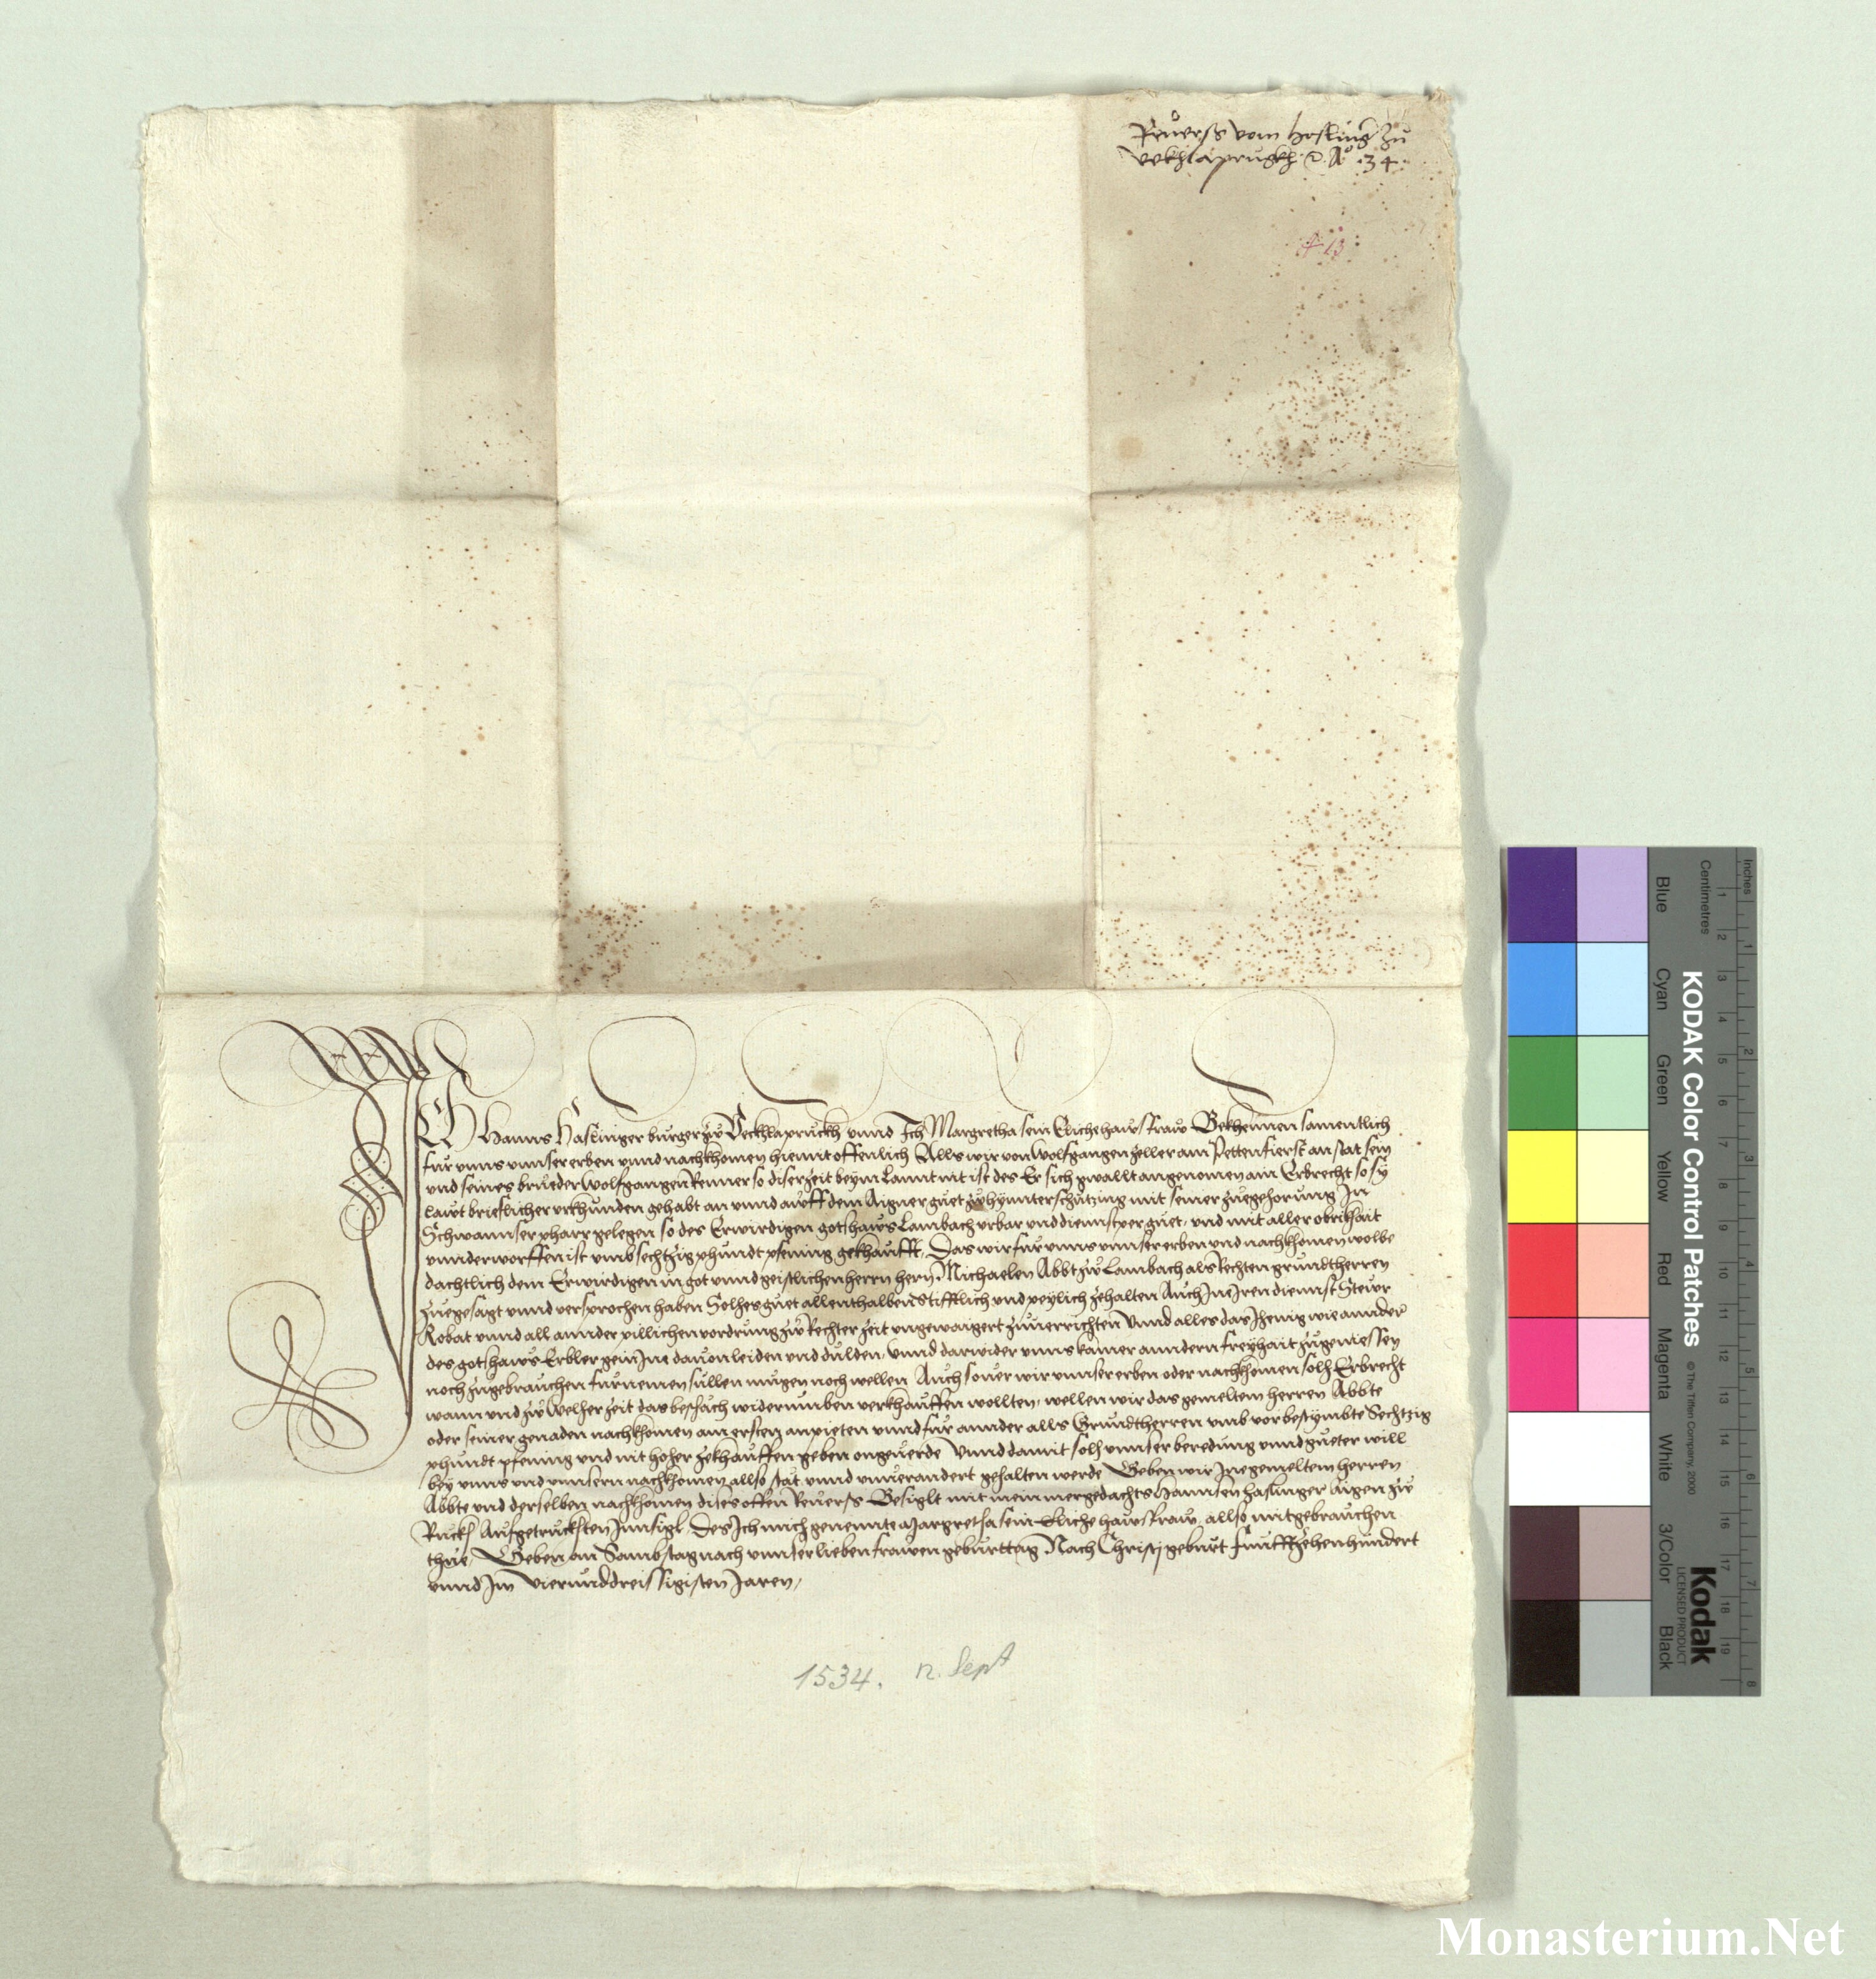 Reuerss vom Haslinger zu
Vekhlaprugkh. A° .34.
13
ICH Hanns Haslinger burger zw Veckhlapruckh vnnd Ich Margretha sein Eliche hawsfraw Bekhennen samentlich
fur vnns vnnser erben vnnd nachkhomen hiemit offenlich Alls wir von Wolfgangen Zeller am Pettenfierst an stat sein
vnd seines brueder Wolfgangen Renner so diser Zeit beym Lannt nit ist des Er sich gwallt angenomen ain Erbrecht so sy
lawt brieflicher vrkhunden gehabt an vnnd auff dem Aigner guet zw hynnterschutzing mit seiner zuegehorung In
Schwannser pharr gelegen so des Erwirdigen gotshaws Lambach vrbar vnd dienstper guet, vnd mit aller obrikhait
vnnderworffen ist vmb sechtzig phundt pfening gekhaufft, Das wir fur vnns vnnser erben vnd nachkhomen wolbe
dachtlich dem Erwirdigen in got vnnd geistlichen herrn hern Michaelen Abbt zw Lambach als Rechten grundtherren
zuegesagt vnnd versprochen haben Solhes guet allenthalben Stifftlich vnd peylich zehalten Auch Ine Iren diennst Stewr
Robat vnnd all annder pillichen vordrung zw Rechter zeit vngewaigert zuuerrichten Vnnd alles das Ihenig wie annder
des gotshaws Erbler gein Ine dauon leiden vnd dulden, Vnnd darwider vnns kainer anndern freyhait zugeniessen
noch zugebrauchen furnemen sullen mugen noch wellen Auch souer wir vnnser erben oder nachkhomen solh Erbrecht
wann vnd zw Welher zeit das beschach widerumben verkhauffen wollten, wellen wir das gemeltem herren Abbte
oder seiner genaden nachkhomen am ersten anpieten vnnd fur annder alls Grundtherren vmb vorbestymbte Sechtzig
phundt pfening vnd nit hoher zekhauffen geben ongeuerde Vnnd damit solh vnnser beredung vnnd gueter will
bey vnns vnd vnnsern nachkhomen allso stat vnnd vnuerandert gehalten werde Geben wir Ine gemeltem herren
Abbte vnd derselben nachkhomen dises offen Reuerss Besiglt mit mein mergedachts Hannsen Haslinger aigen zw
Ruckh Aufgetruckhten Innsigl, Des Ich mich genennte Margretha sein Eliche hawsfraw, allso mitgebrauchen
thue, Geben an Sambstag nach vnnser lieben frawen geburttag Nach Christj geburt funffzehenhundert
vnnd Im Vierunddreissigisten Jaren,
1534. 12. Sept
Inches
Centimetres
1 2 3 4 5 6 7 8 9 10 11 12 13 14 15 16 17 18 19
1 2 3 4 5 6 7 8
KODAK Color Control Patches
© The Tiffen Company, 2000
Kodak
LICENSED PRODUCT
Blue
Cyan
Green
Yellow
Red
Magenta
White
3/Color
Black
Monasterium.Net